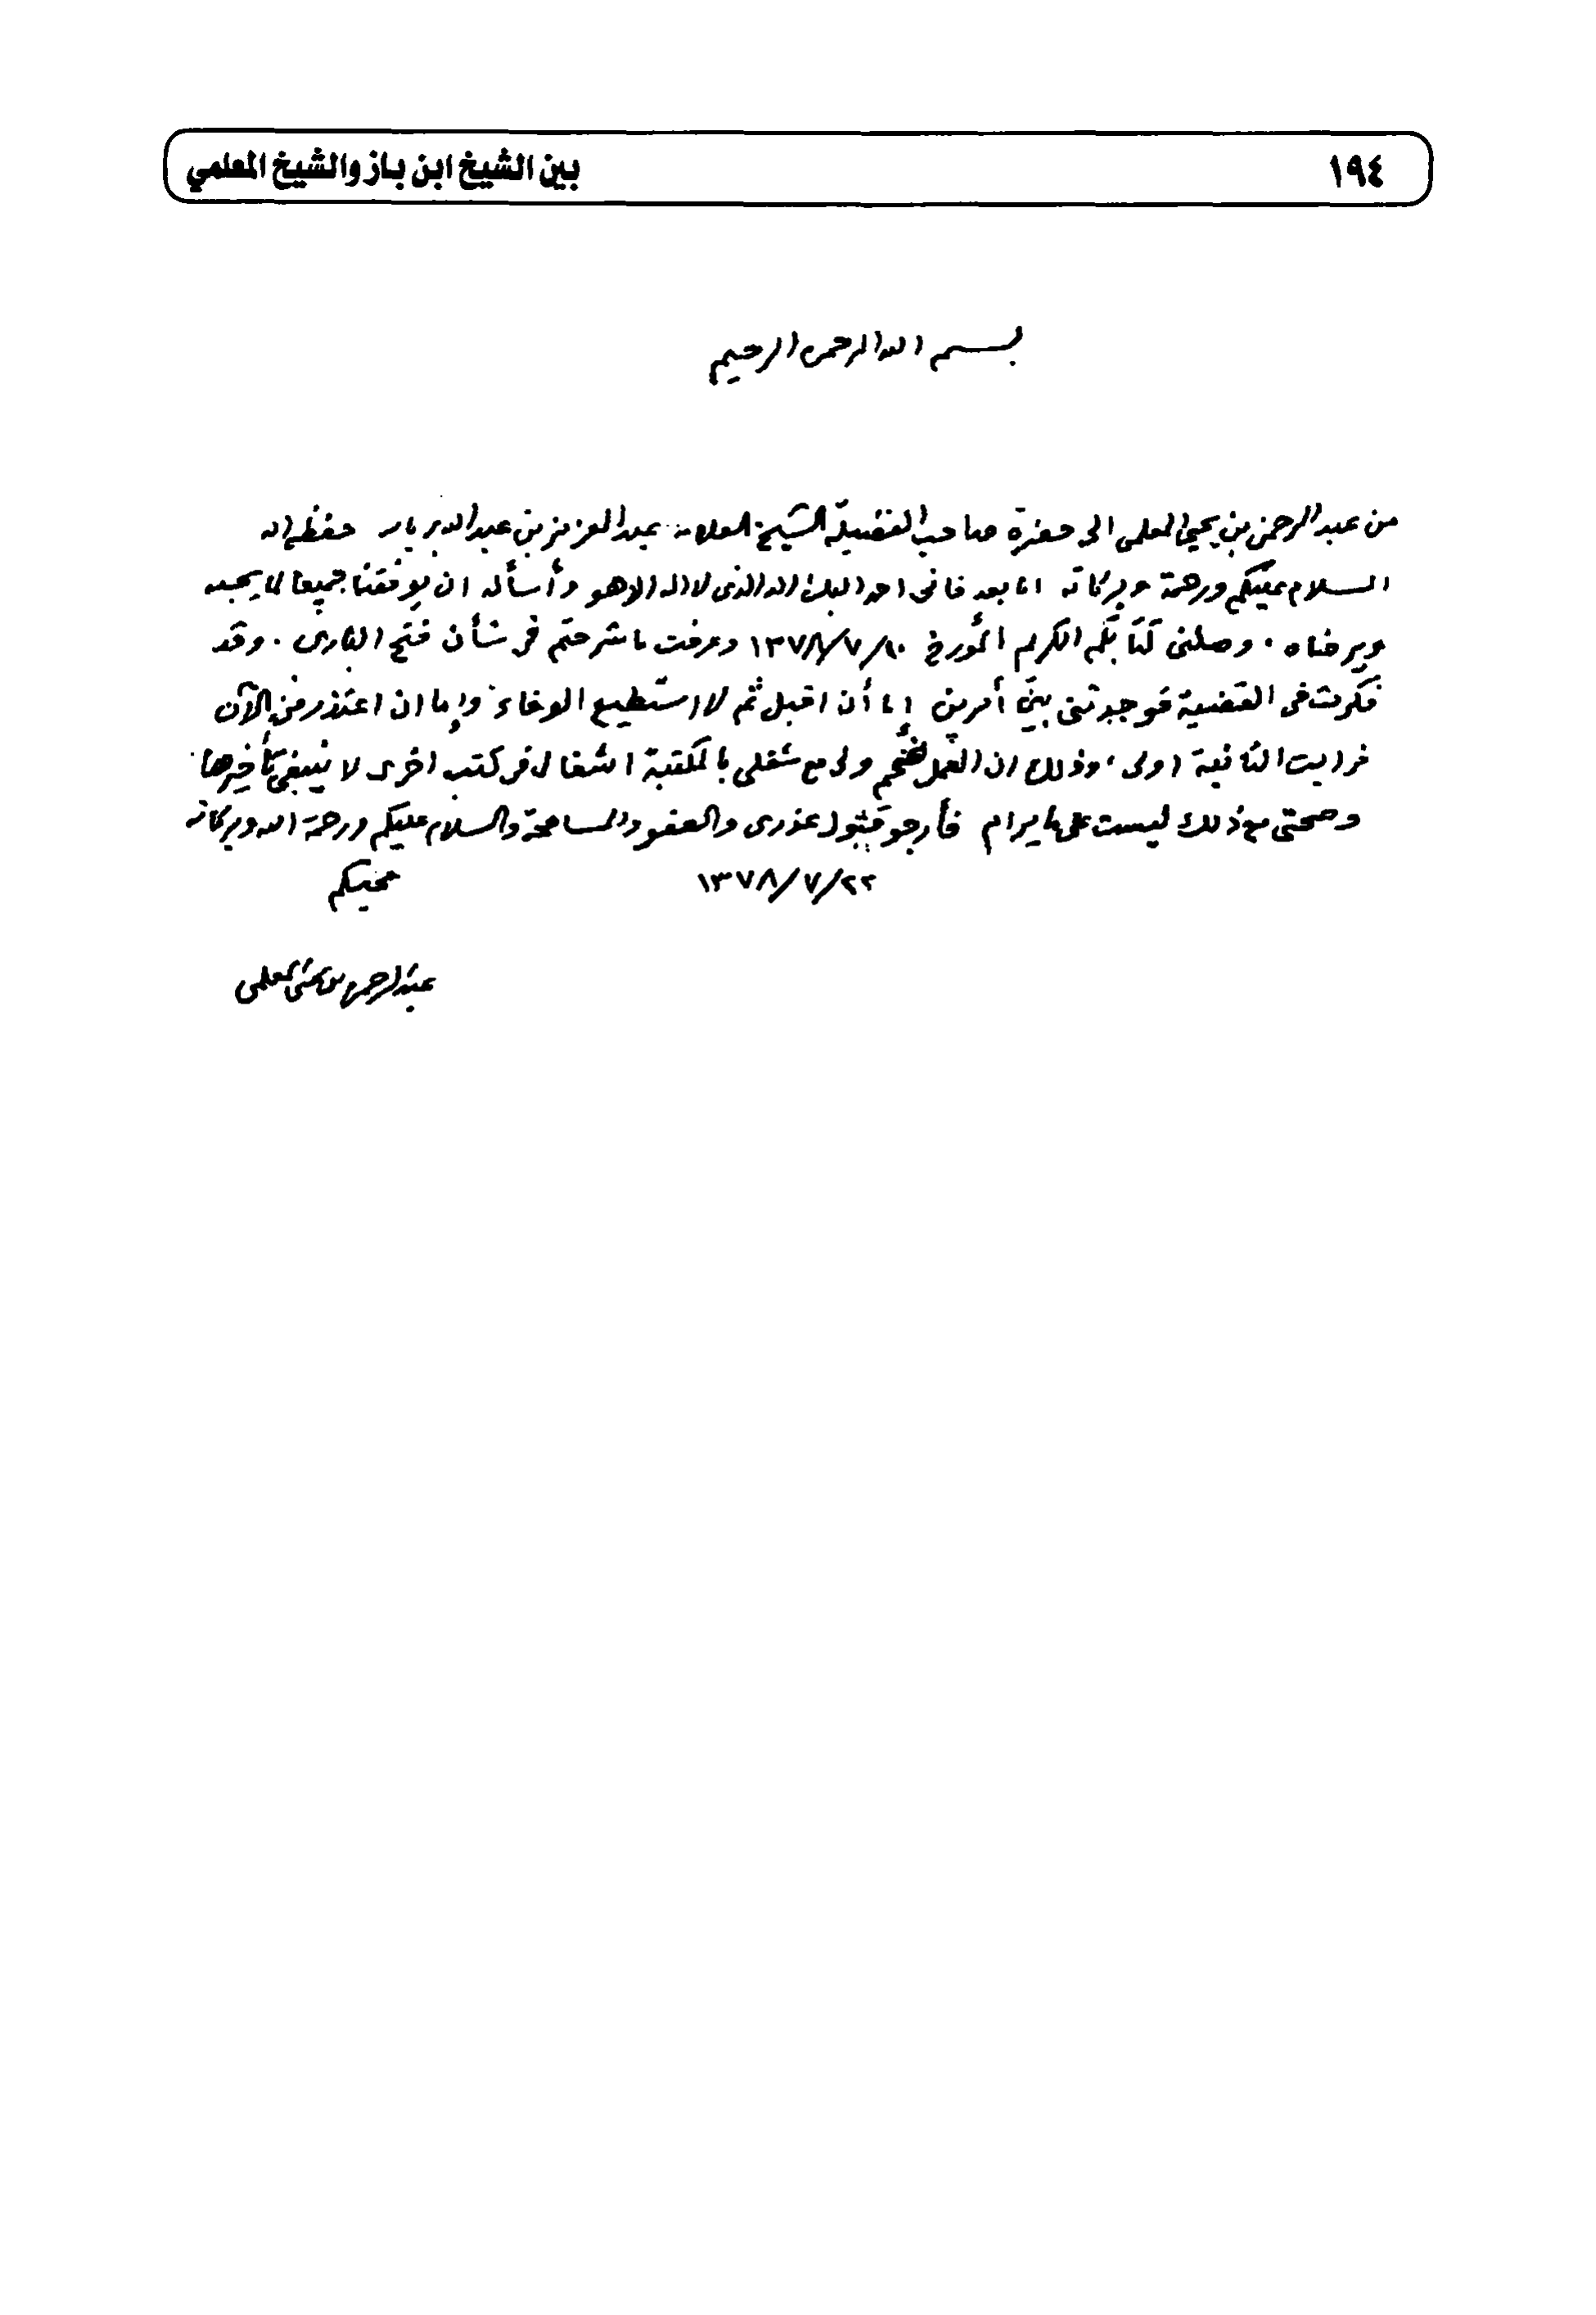 ١٩٤
بين الشيخ ابن باز والشيخ المعلمي
بسم الله الرحمن الرحيم
من عبد الرحمن بن يحيى المعلمي الى حضرة صاحب الفضيلة الشيخ العلامة عبد العزيز بن عبد الله بن باز حفظه الله
السلام عليكم ورحمة وبركاته اما بعد فاني احمد اليك الله الذي لا اله الا هو وأسأله ان يوفقنا جميعا لما يحبه
ويرضاه . وصلني كتابكم الكريم المؤرخ ١٣٧٨/٧/١٠ وعرفت ما شرحتم في شأن فتح الباري . وقد
فكرت في القضية فوجدتني بين أمرين إما أن اقبل ثم لا استطيع الوفاء وإما ان اعتذر من الآن
فرايت الثانية اولى ، وذلك ان العمل ضخم ولي مع شغلي بالمكتبة اشغال في كتب اخرى لا ينبغي تأخيرها
وصحتي مع ذلك ليست على ما يرام فأرجو قبول عذري والعفو والمسامحة والسلام عليكم ورحمة الله وبركاته
١٣٧٨/٧/٢٢ محبكم
عبد الرحمن بن يحيى المعلمي